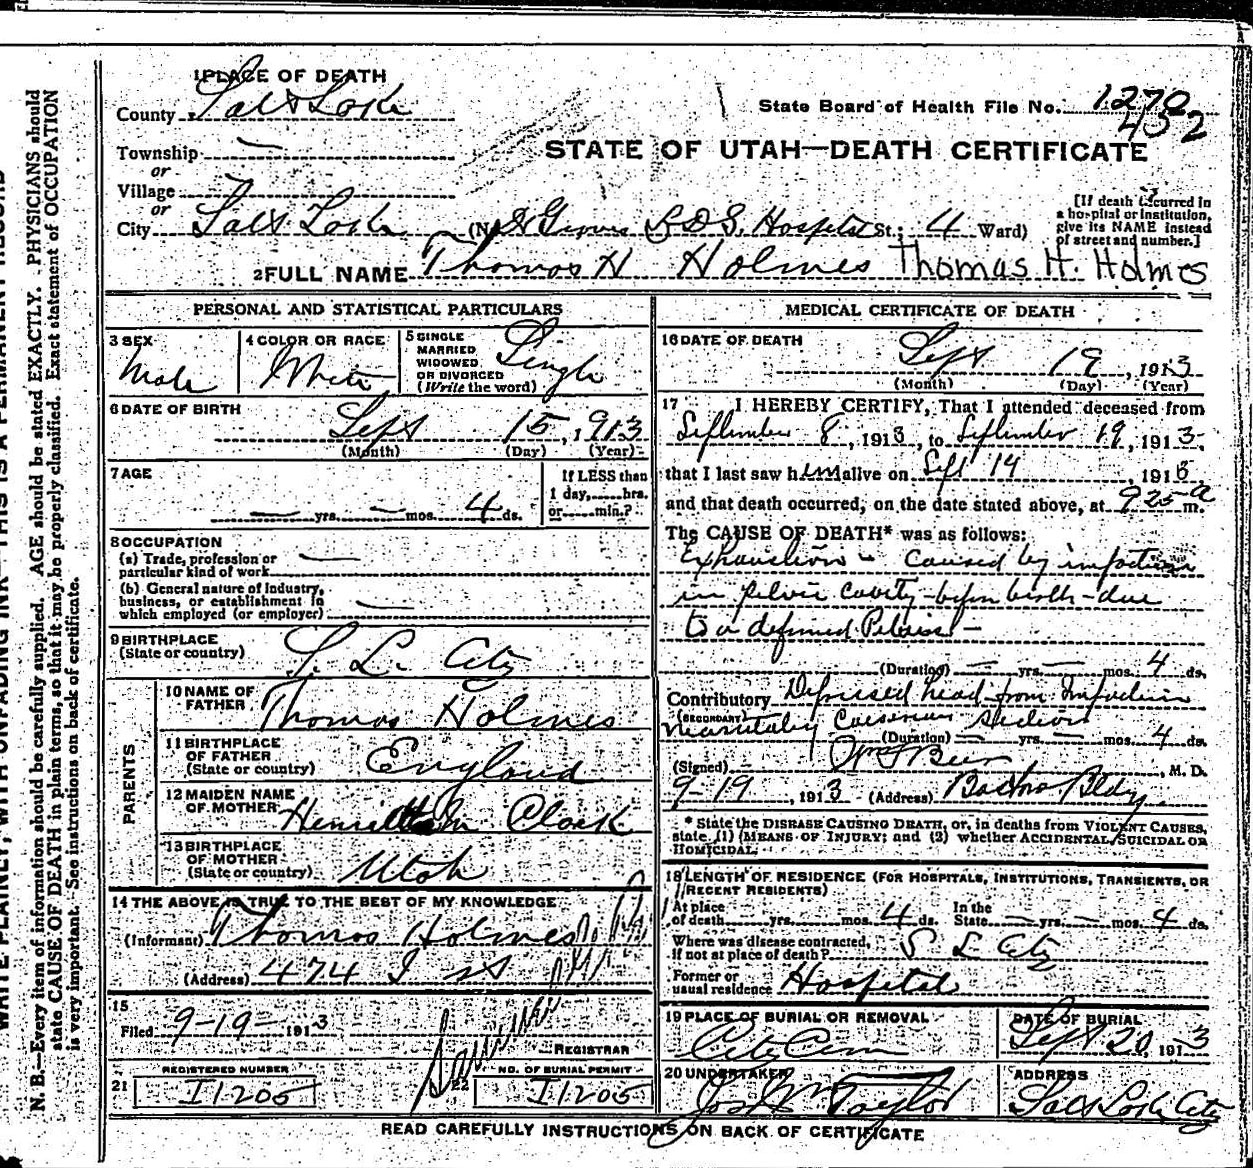 WRITE PLAINLY, WITH UNFADING INK—THIS IS A PERMANENT RECORD
N. B.—Every item of information should be carefully supplied. AGE should be stated EXACTLY. PHYSICIANS should
state CAUSE OF DEATH in plain terms, so that it may be properly classified. Exact statement of OCCUPATION
is very important. See instructions on back of certificate.
1 PLACE OF DEATH
County Salt Lake
State Board of Health File No. 1270
452
Township —
or
STATE OF UTAH—DEATH CERTIFICATE
Village
or
City Salt Lake (No. L D S. Hospital St.; 4 Ward)
[If death occurred in
a hospital or institution,
give its NAME instead
of street and number.]
2 FULL NAME Thomas H Holmes Thomas H. Holmes
PERSONAL AND STATISTICAL PARTICULARS
3 SEX
Male
4 COLOR OR RACE
White
5 SINGLE
MARRIED
WIDOWED
OR DIVORCED
(Write the word)
Single
6 DATE OF BIRTH
Sept 15, 1913
(Month) (Day) (Year)
7 AGE
— yrs. — mos. 4 ds.
If LESS than
1 day, hrs.
or min.?
8 OCCUPATION
(a) Trade, profession or
particular kind of work —
(b) General nature of industry,
business, or establishment in
which employed (or employer) —
9 BIRTHPLACE
(State or country) S. L. City
PARENTS
10 NAME OF
FATHER Thomas Holmes
11 BIRTHPLACE
OF FATHER
(State or country) England
12 MAIDEN NAME
OF MOTHER Clark
13 BIRTHPLACE
OF MOTHER
(State or country) Utah
14 THE ABOVE IS TRUE TO THE BEST OF MY KNOWLEDGE
(Informant) Thomas Holmes
(Address) 474 I st
15
Filed 9-19- 1913
REGISTRAR
REGISTERED NUMBER
21 I1205
22 NO. OF BURIAL PERMIT
I1205
MEDICAL CERTIFICATE OF DEATH
16 DATE OF DEATH
Sept 19, 1913
(Month) (Day) (Year)
17 I HEREBY CERTIFY, That I attended deceased from
September 8, 1913, to September 19, 1913,
that I last saw him alive on Sept 19, 1913
and that death occurred, on the date stated above, at 925 a m.
The CAUSE OF DEATH* was as follows:
Exhaustion - caused by impaction
in pelvic cavity - before birth - due
to a deformed Pelvis -
(Duration) — yrs. — mos. 4 ds.
Contributory Depressed head from Impaction
(SECONDARY) Caesarean Section
(Duration) — yrs. — mos. 4 ds.
(Signed) Beer, M. D.
9-19, 1913 (Address) Boston Bldg.
* State the DISEASE CAUSING DEATH, or, in deaths from VIOLENT CAUSES,
state (1) MEANS OF INJURY; and (2) whether ACCIDENTAL, SUICIDAL OR
HOMICIDAL.
18 LENGTH OF RESIDENCE (FOR HOSPITALS, INSTITUTIONS, TRANSIENTS, OR
RECENT RESIDENTS)
At place
of death yrs. mos. 4 ds.
In the
State — yrs. — mos. 4 ds.
Where was disease contracted,
if not at place of death? S L City
Former or
usual residence Hospital
19 PLACE OF BURIAL OR REMOVAL
City Cem
DATE OF BURIAL
Sept 20, 1913
20 UNDERTAKER
Jos Wm Taylor
ADDRESS
Salt Lake City
READ CAREFULLY INSTRUCTIONS ON BACK OF CERTIFICATE